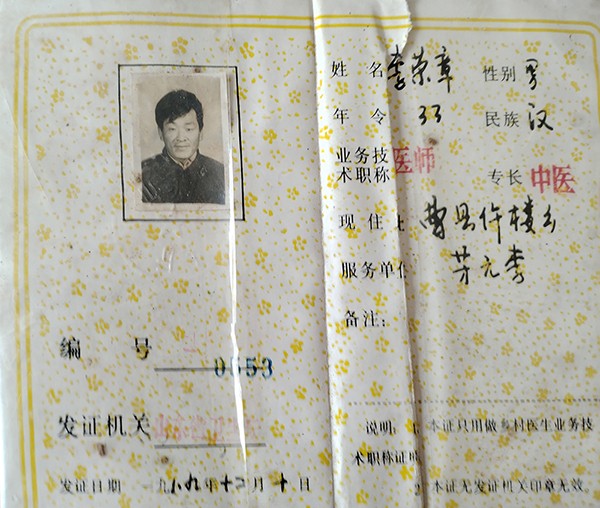 姓 名 李荣章 性别 男
年 令 33 民族 汉
业务技
术职称 医师 专长 中医
现 住 曹县仵楼乡
服务单位
备注:
编 号 0553
发证机关
发证日期 一九八九年十二月十日
说明: 本证只用做乡村医生业务技
术职称证明
2 本证无发证机关印章无效。